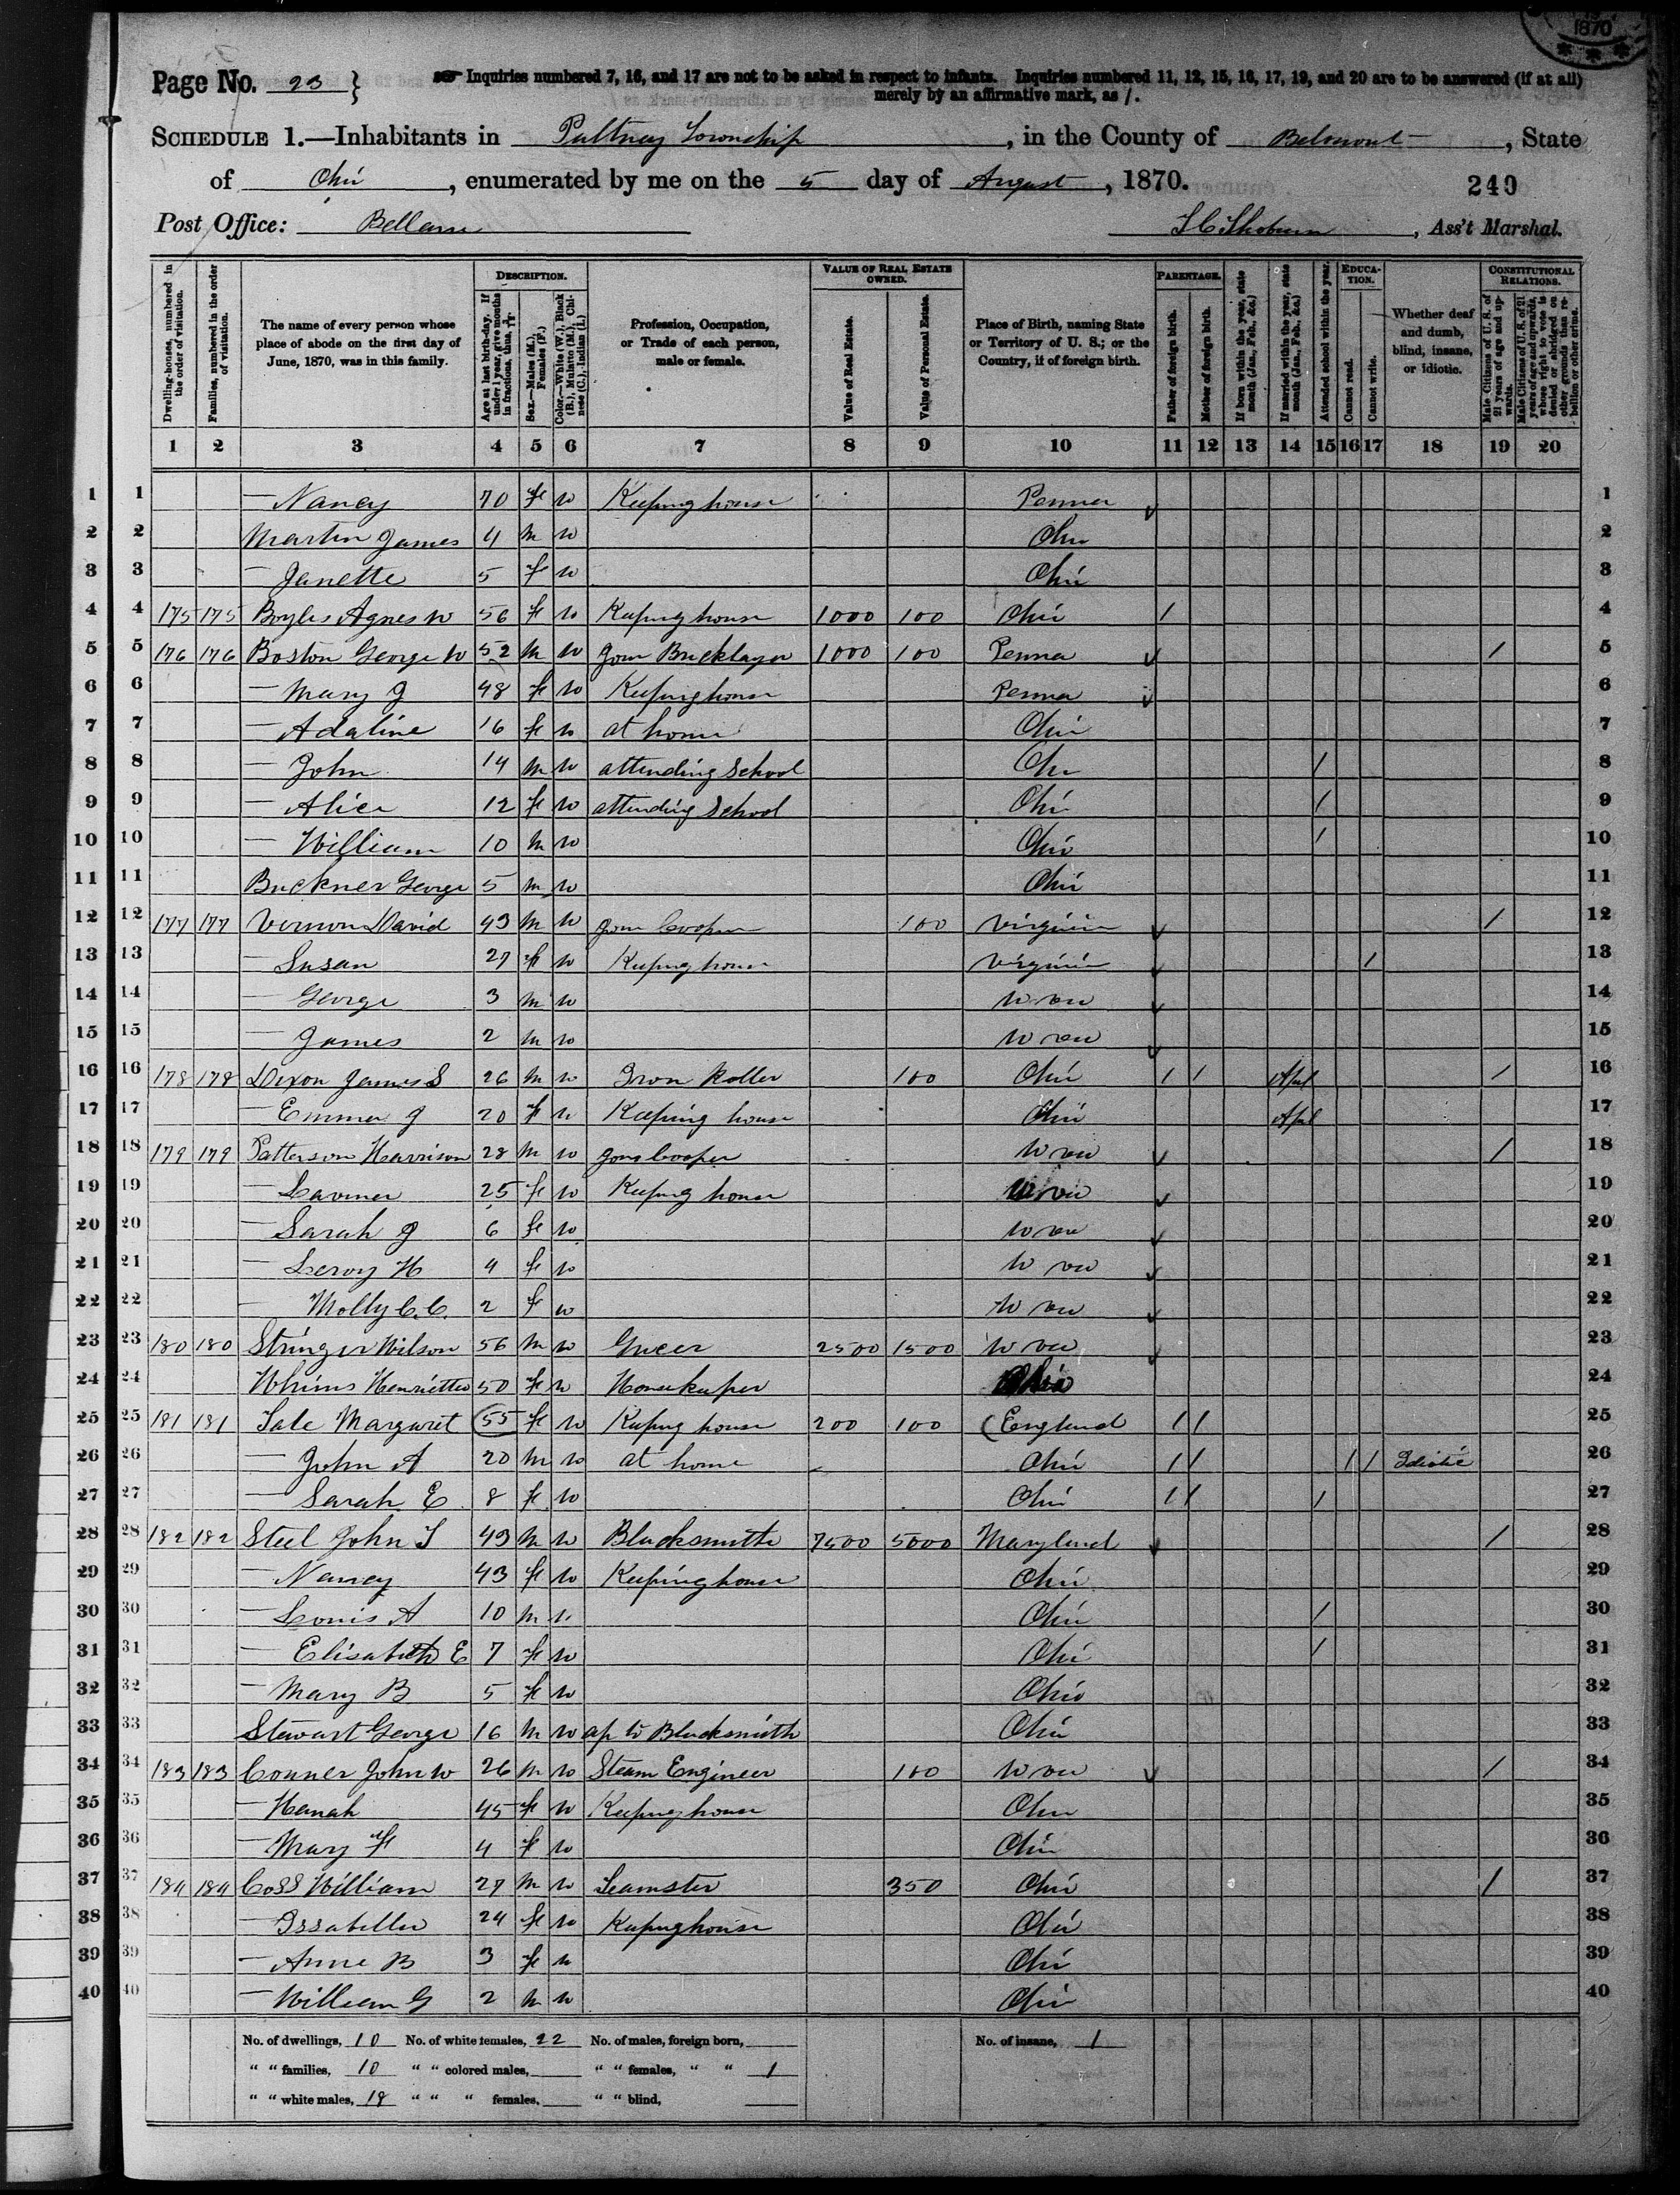 1870
Page No. 23 } Inquiries numbered 7, 16, and 17 are not to be asked in respect to infants. Inquiries numbered 11, 12, 15, 16, 17, 19, and 20 are to be answered (if at all)
merely by an affirmative mark, as /.
SCHEDULE 1.—Inhabitants in Pultney Township, in the County of Belmont, State
of Ohio, enumerated by me on the 5 day of August, 1870. 249
Post Office: Bellaire , Ass't Marshal.
Dwelling-houses, numbered in the order of visitation. Families, numbered in the order of visitation. The name of every person whose place of abode on the first day of June, 1870, was in this family. DESCRIPTION. Age at last birth-day. If under 1 year, give months in fractions, thus, 3/12 Sex.—Males (M.), Females (F.) Color.—White (W.), Black (B.), Mulatto (M.), Chinese (C.), Indian (I.) Profession, Occupation, or Trade of each person, male or female. VALUE OF REAL ESTATE OWNED. Value of Real Estate. Value of Personal Estate. Place of Birth, naming State or Territory of U. S.; or the Country, if of foreign birth. PARENTAGE. Father of foreign birth. Mother of foreign birth. If born within the year, state month (Jan., Feb., &c.) If married within the year, state month (Jan., Feb., &c.) Attended school within the year. EDUCATION. Cannot read. Cannot write. Whether deaf and dumb, blind, insane, or idiotic. CONSTITUTIONAL RELATIONS. Male Citizens of U. S. of 21 years of age and upwards. Male Citizens of U. S. of 21 years of age and upwards, whose right to vote is denied or abridged on other grounds than rebellion or other crime.
1 2 3 4 5 6 7 8 9 10 11 12 13 14 15 16 17 18 19 20
1 1 — Nancy 70 F W Keeping house Penna 1
2 2 Martin James 4 M W Ohio 2
3 3 — Janette 5 F W Ohio 3
4 4 175 175 Boyles Agnes W 56 F W Keeping house 1000 100 Ohio / 4
5 5 176 176 Boston George W 52 M W Jour Bricklayer 1000 100 Penna / 5
6 6 — Mary J 48 F W Keeping house Penna 6
7 7 — Adaline 16 F W at home Ohio 7
8 8 — John 14 M W attending School Ohio / 8
9 9 — Alice 12 F W attending School Ohio / 9
10 10 — William 10 M W Ohio / 10
11 11 Buckner George 5 M W Ohio 11
12 12 177 177 Vernon David 43 M W Jour Cooper 100 Virginia / 12
13 13 — Susan 27 F W Keeping house Virginia / 13
14 14 — George 3 M W W va 14
15 15 — James 2 M W W va 15
16 16 178 178 Dixon James S 26 M W Iron Roller 100 Ohio / / Apl / 16
17 17 — Emma J 20 F W Keeping house Ohio Apl 17
18 18 179 179 Patterson Harrison 28 M W Jour Cooper W va / 18
19 19 — Lavinea 25 F W Keeping house W va 19
20 20 — Sarah J 6 F W W va 20
21 21 — Leroy H 4 F W W va 21
22 22 — Molly C. C. 2 F W W va 22
23 23 180 180 Stringer Wilson 56 M W Grocer 2500 1500 W va 23
24 24 Whims Henrietta 50 F W Housekeeper Ohio 24
25 25 181 181 Tale Margaret 55 F W Keeping house 200 100 England / / 25
26 26 — John A 20 M W at home Ohio / / / / Idiotic 26
27 27 — Sarah E 8 F W Ohio / / / 27
28 28 182 182 Steel John T 43 M W Blacksmith 7500 5000 Maryland / 28
29 29 — Nancy 43 F W Keeping house Ohio 29
30 30 — Louis A 10 M W Ohio / 30
31 31 — Elisabeth E 7 F W Ohio / 31
32 32 — Mary B 5 F W Ohio 32
33 33 Stewart George 16 M W ap to Blacksmith Ohio 33
34 34 183 183 Conner John W 26 M W Steam Engineer 100 W va / 34
35 35 — Hanah 45 F W Keeping house Ohio 35
36 36 — Mary F 4 F W Ohio 36
37 37 184 184 Coss William 27 M W Teamster 350 Ohio / 37
38 38 — Issabella 24 F W Keeping house Ohio 38
39 39 — Anne B 3 F W Ohio 39
40 40 — William G 2 M W Ohio 40
No. of dwellings, 10 No. of white females, 22 No. of males, foreign born, No. of insane, 1
" " families, 10 " " colored males, " " females, " " 1
" " white males, 18 " " " females, " " blind,